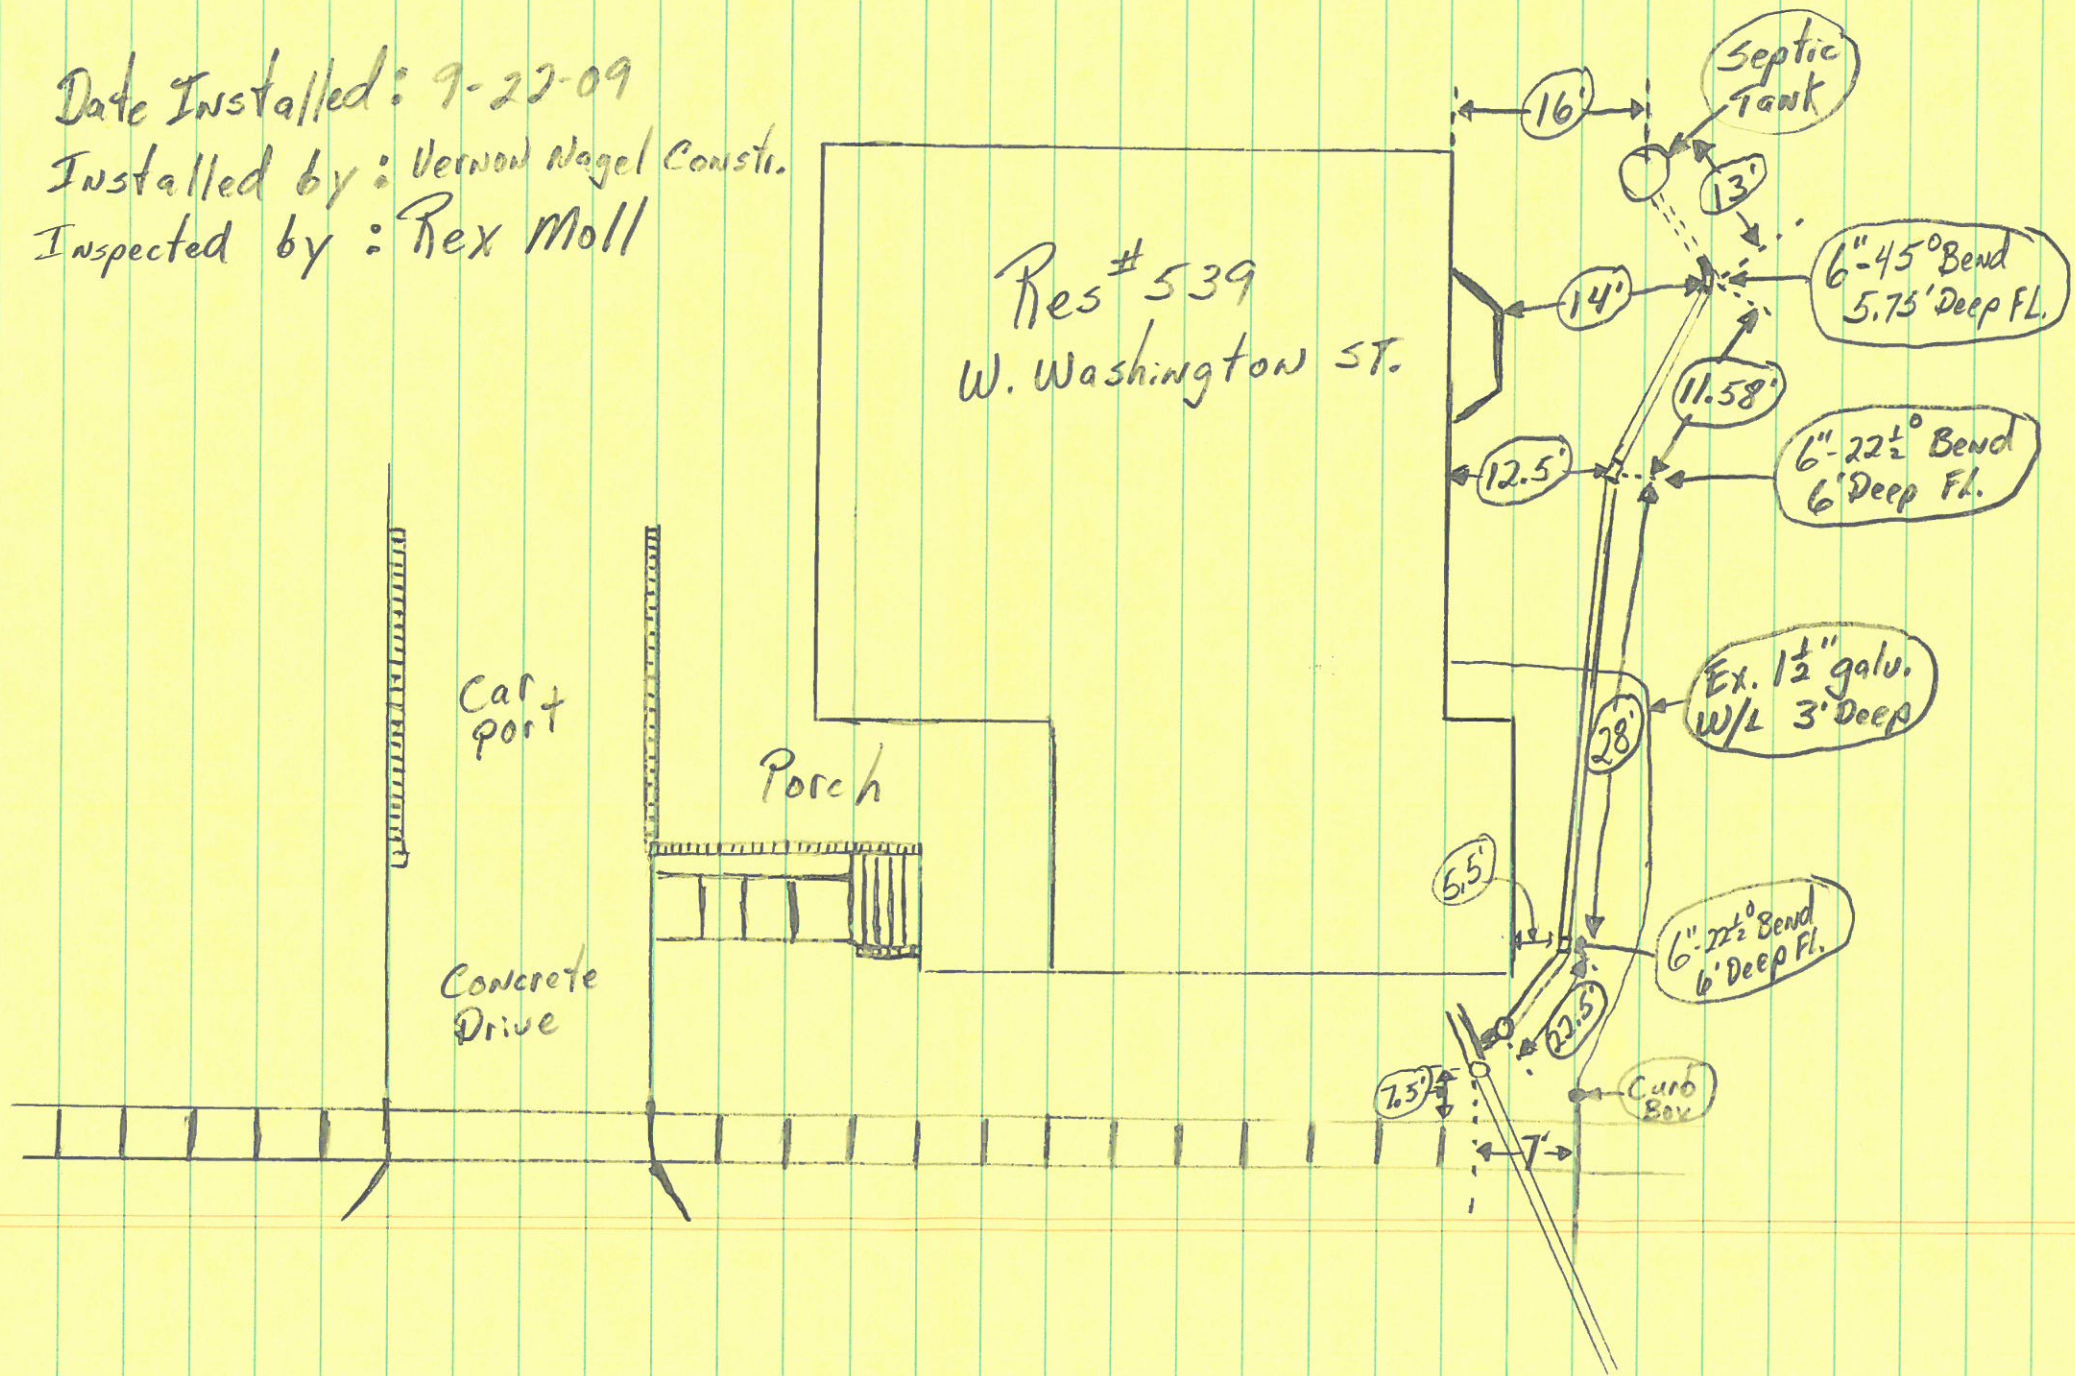 Date Installed: 9-22-09
Installed by: Vernon Nagel Constr.
Inspected by: Rex Moll
Septic
Tank
16'
13'
6"-45° Bend
5.75' Deep FL.
14'
Res #539
W. Washington ST.
11.58'
6"-22½° Bend
6' Deep FL.
12.5'
Ex. 1½" galv.
W/L 3' Deep
28'
Car
port
Porch
5.5'
6"-22½° Bend
6' Deep FL.
22.5'
Concrete
Drive
7.5'
Curb
Box
7'